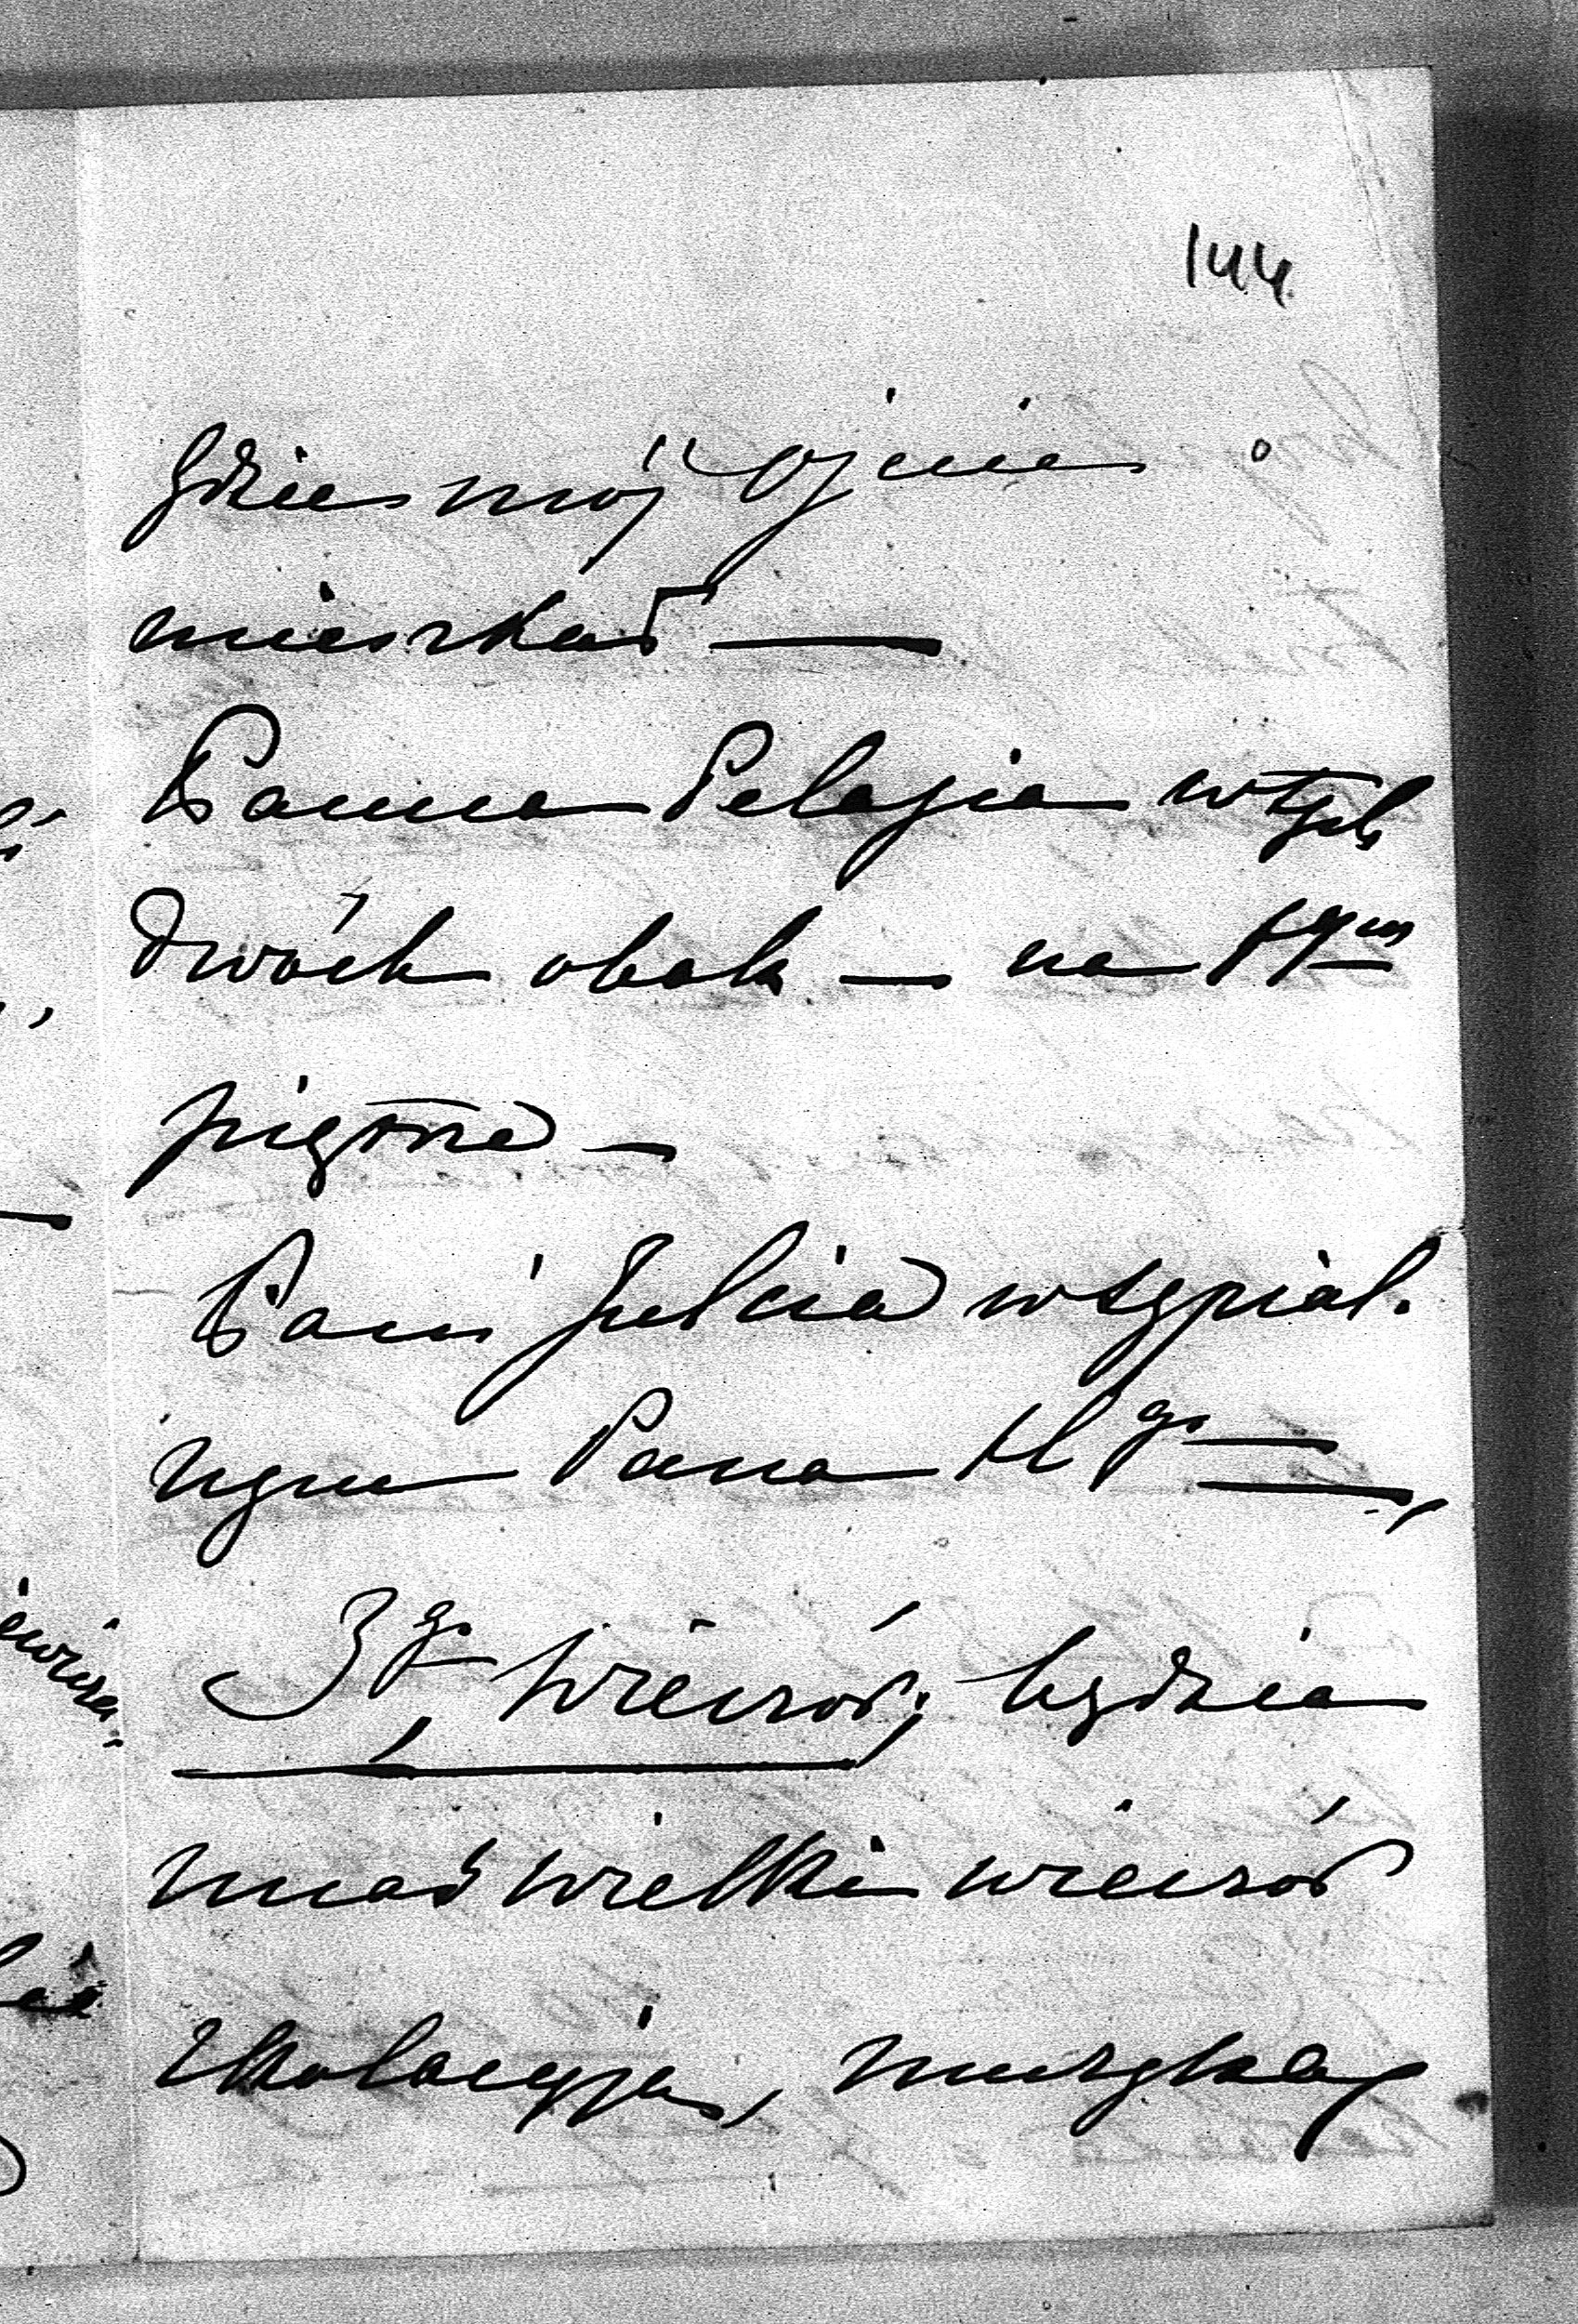 144
gdzie mój Ojciec
mieszkał —
Panna Pelagia w tych
dwóch obok — na 1ym
piętrze —
Pani Julcia w sypial.
nym Pana
3go, wieczór, będzie
miał wielki wieczór
z kolacyją, muzyką